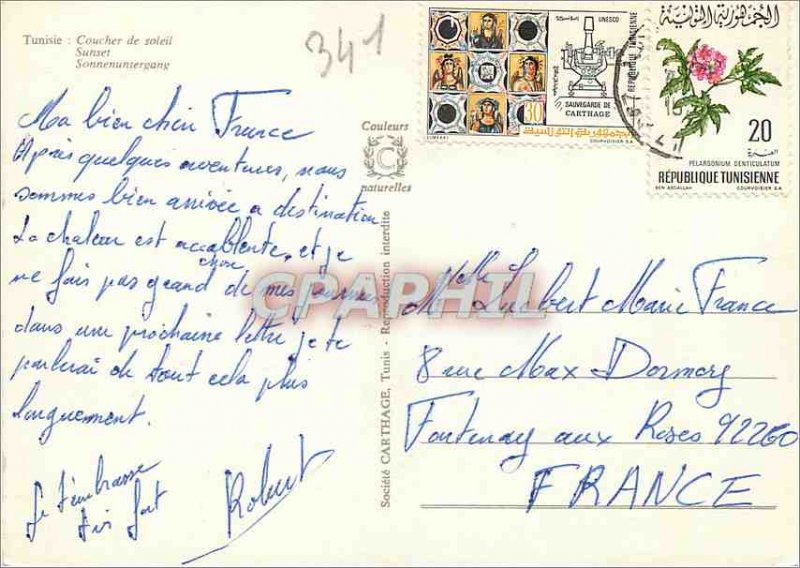 Tunisie : Coucher de soleil
Sunset
Sonnenuntergang
341
Ma bien chère France
Après quelques aventures, nous
sommes bien arrivée a destination
La chaleur est accablente, et je
ne fais pas grand chose de mes journées
dans une prochaine lettre je te
parlerai de tout cela plus
longuement.
Je t'embrasse
très fort
Robert
Couleurs
C
naturelles
Société CARTHAGE, Tunis - Reproduction interdite
CPAPHIL
UNESCO
SAUVEGARDE DE
CARTHAGE
30
REPUBLIQUE TUNISIENNE
COURVOISIER S.A
الجمهورية التونسية
20
PELARGONIUM DENTICULATUM
RÉPUBLIQUE TUNISIENNE
BEN ABDALLAH COURVOISIER S.A
Melle Lucbert Marie France
8 rue Max Dormoy
Fontenay aux Roses 92260
FRANCE